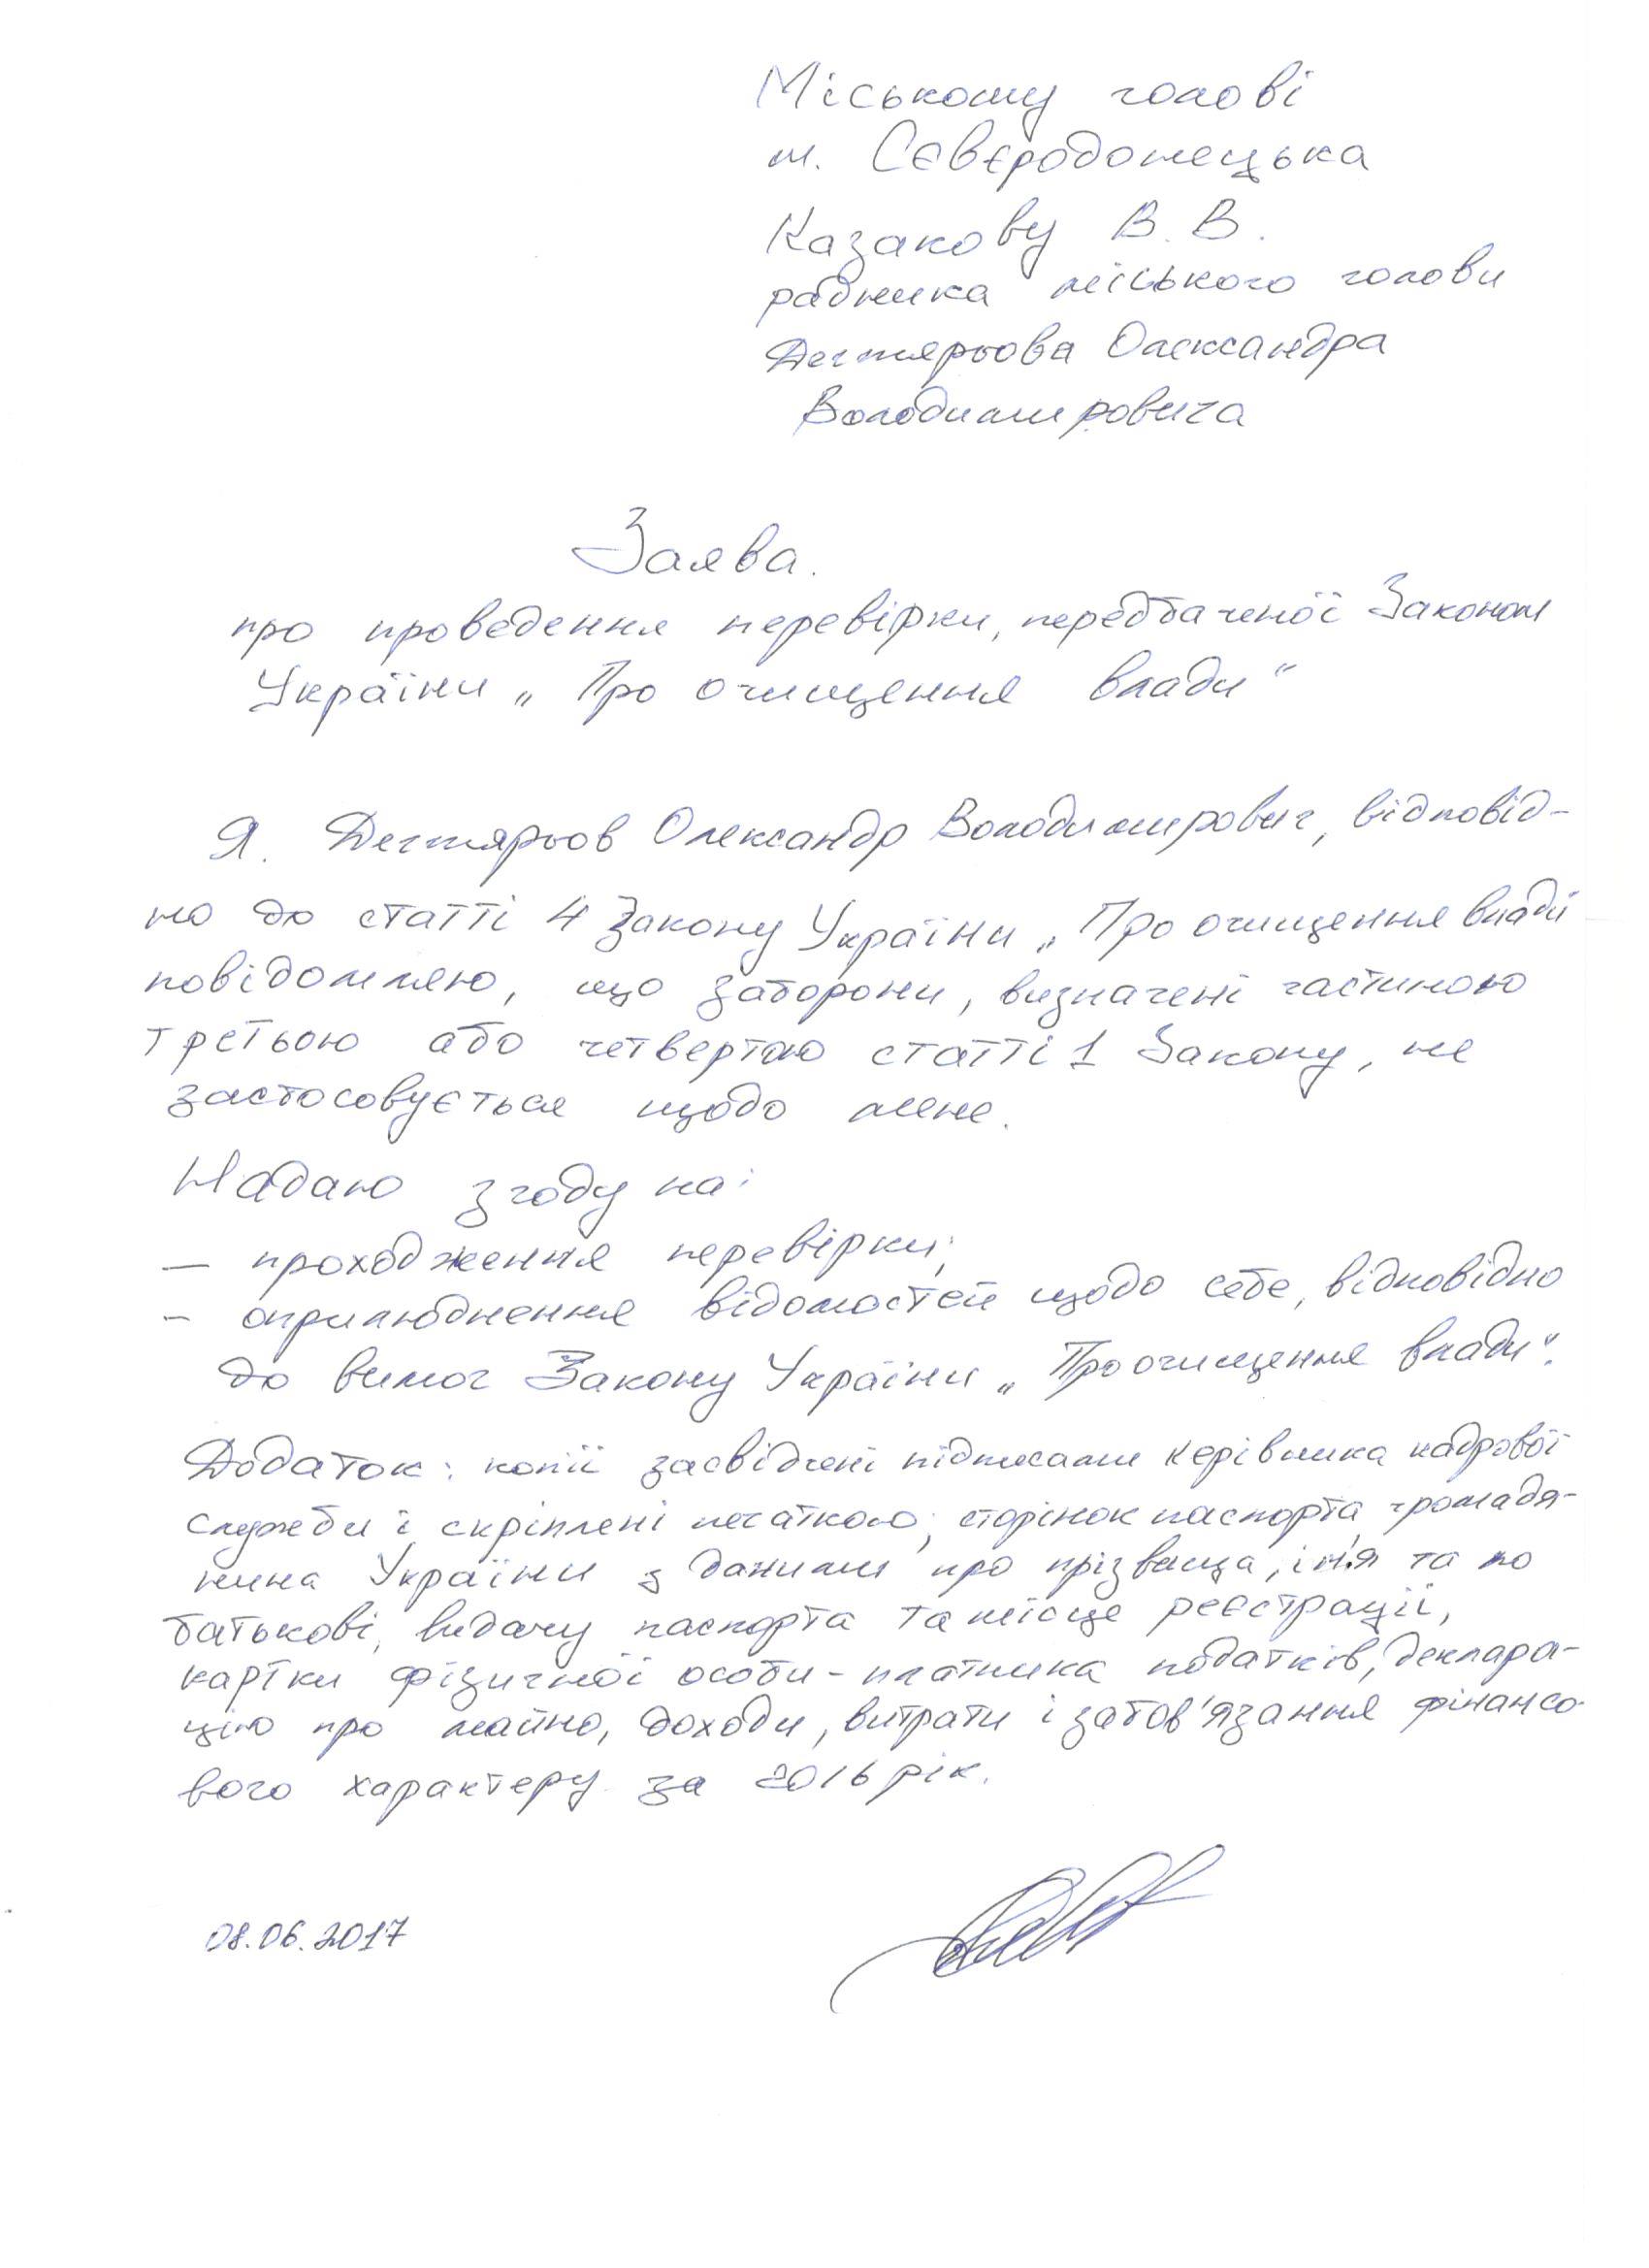 Міському голові
м. Сєвєродонецька
Казакову В. В.
радника міського голови
Дегтярьова Олександра
Володимировича
Заява.
про проведення перевірки, передбаченої Законом
України „Про очищення влади"
Я. Дегтярьов Олександр Володимирович, відповід-
но до статті 4 Закону України „Про очищення влади
повідомляю, що заборони, визначені частиною
третьою або четвертою статті 1 Закону, не
застосовується щодо мене.
Надаю згоду на:
— проходження перевірки;
– оприлюднення відомостей щодо себе, відповідно
до вимог Закону України „Про очищення влади".
Додаток: копії засвідчені підписами керівника кадрової
служби і скріплені печаткою; сторінок паспорта громадя-
нина України з даними про прізвища, ім'я та по
батькові, видачу паспорта та місце реєстрації,
картки фізичної особи-платника податків, деклара-
цію про майно, доходи, витрати і зобов'язання фінансо-
вого характеру за 2016 рік.
08.06.2017